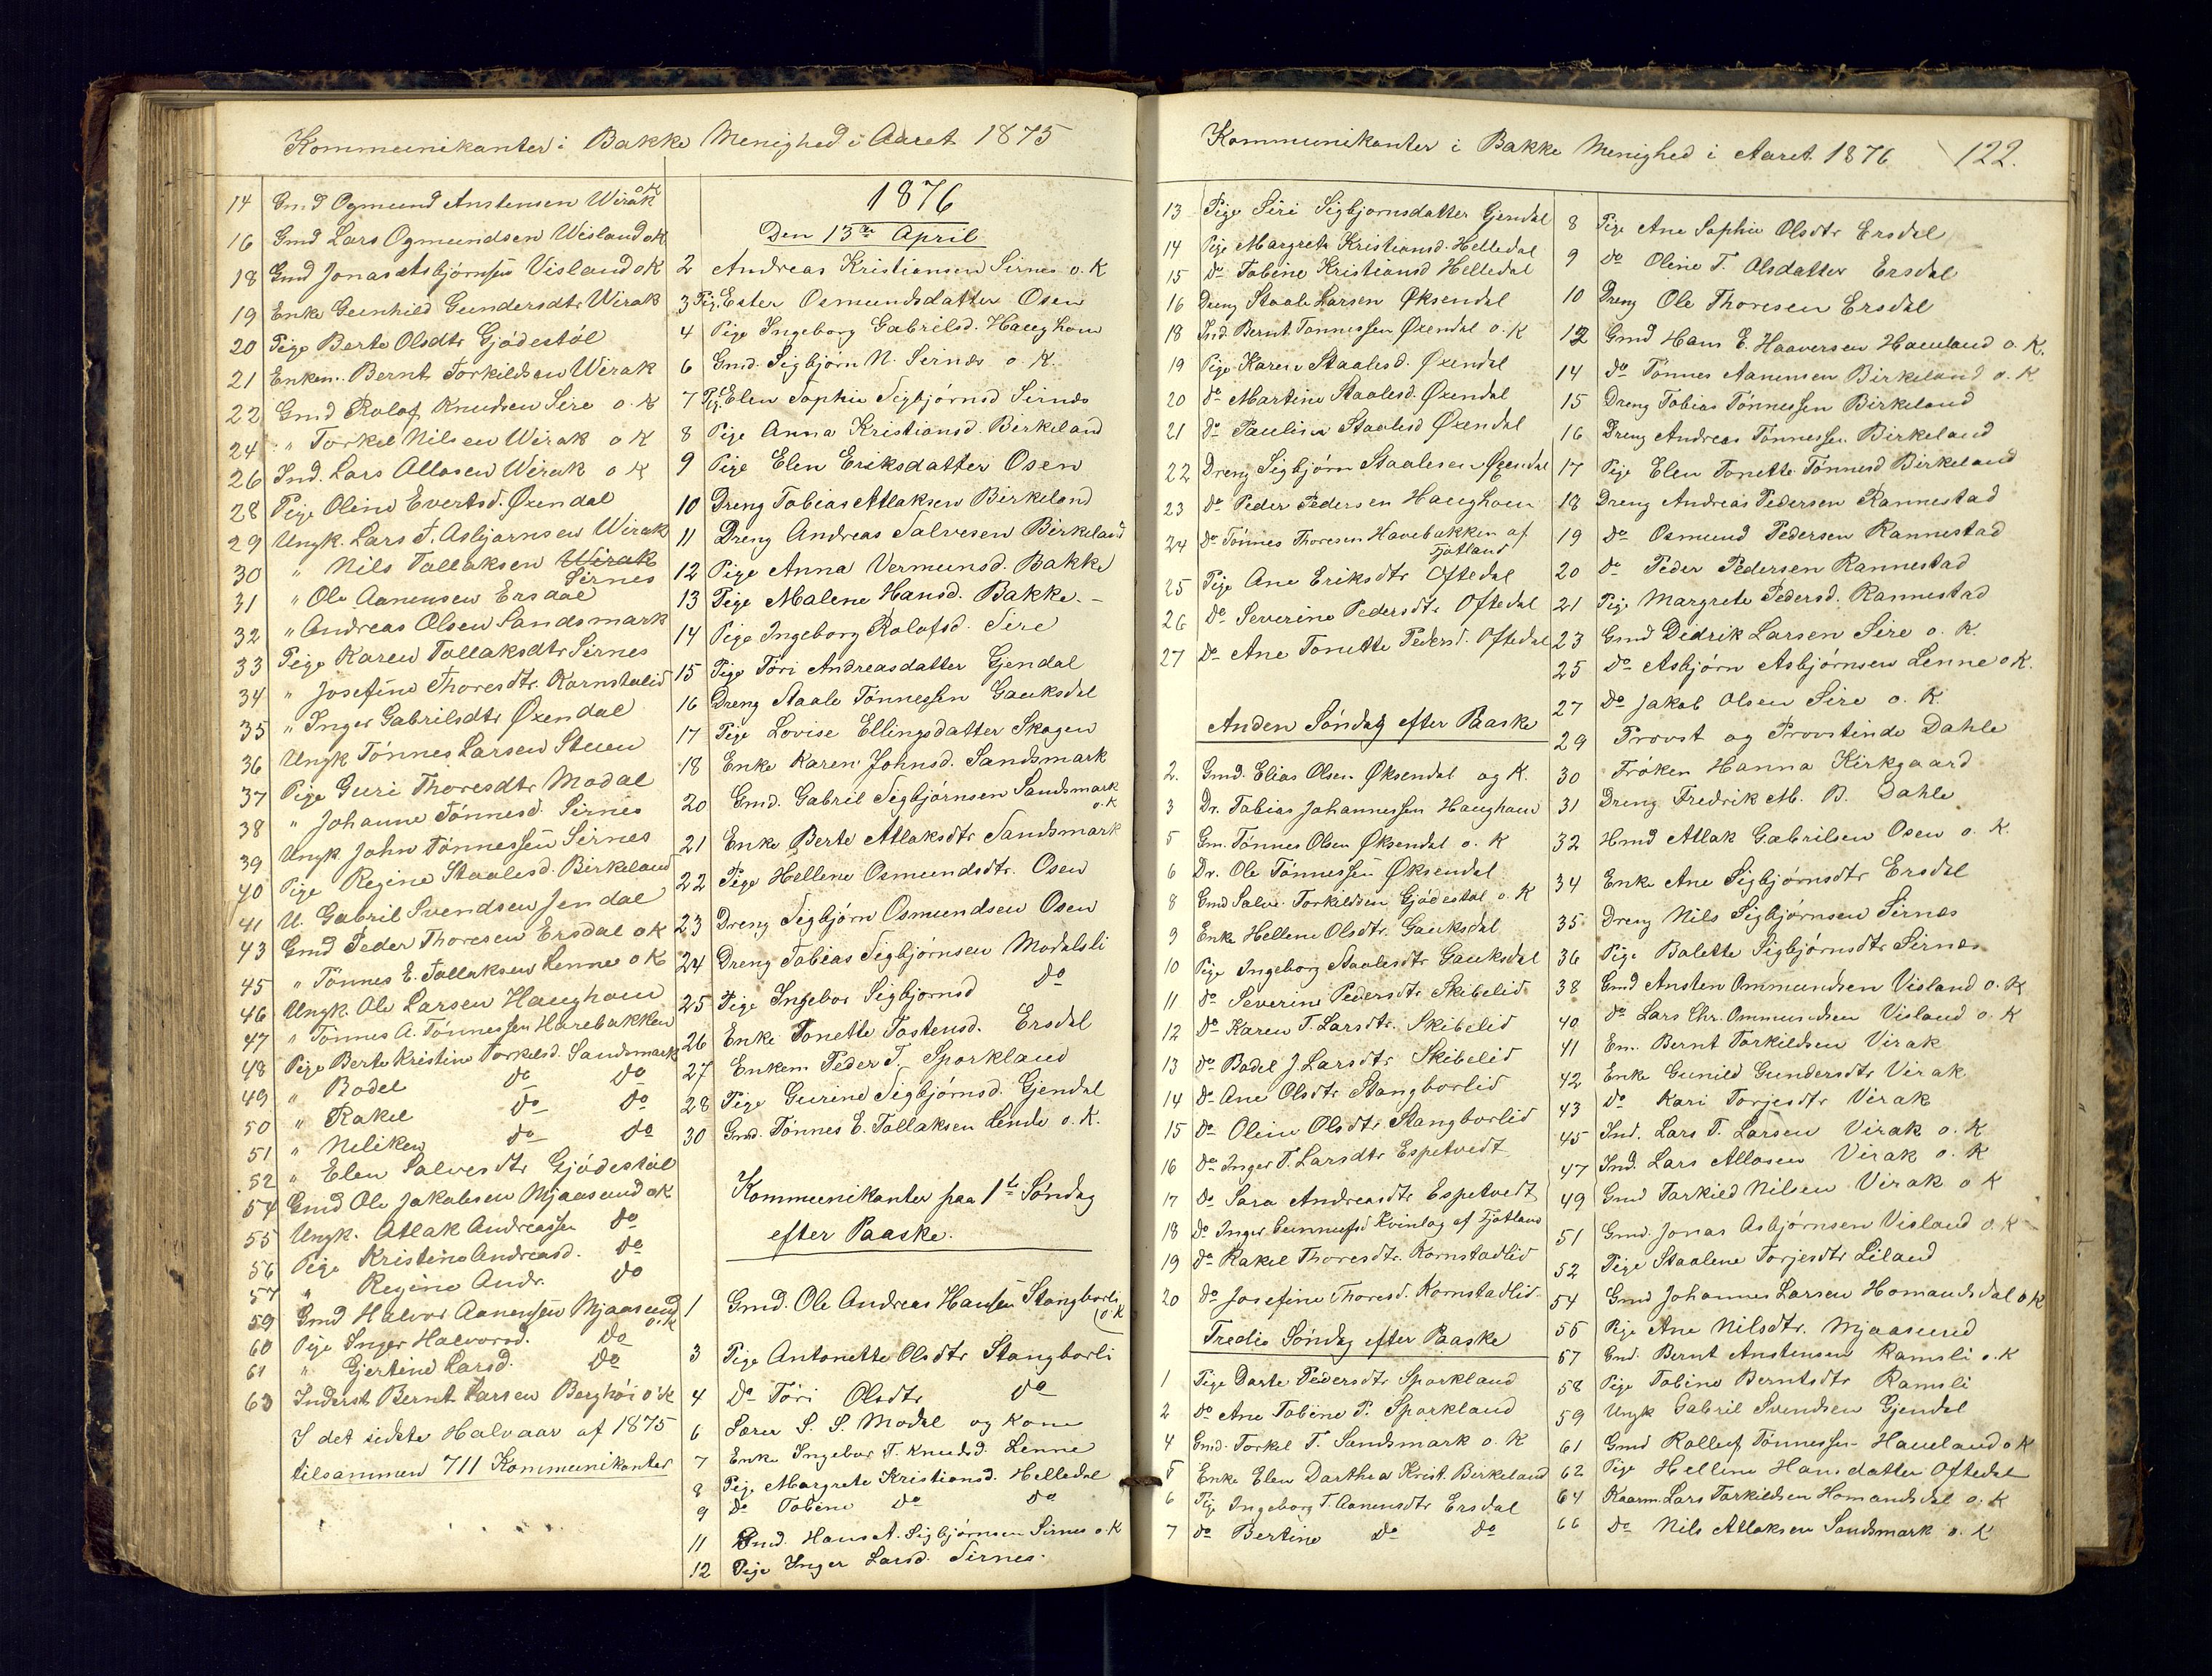 Kommunikanter i Bakke Menighed i Aaret 1875
14 Gmd Ogmund Anstensen Wirak o K
16 Gmd Lars Ogmundsen Wisland o K
18 Gmd Jonas Asbjørnsen Visland o K
19 Enke Gunhild Gundersdtr Wirak
20 Pige Berte Olsdtr Gjødestøl
21 Enkem. Bernt Torkildsen Wirak
22 Gmd Rolof Knudsen Sire o. K
24 " Torkel Nilsen Wirak o K
26 Ind. Lars Atlasen Wirak o K
28 Pige Oline Evertsd. Øxendal
29 Ungk. Lars T. Asbjørnsen Wirak
30 " Nils Tallaksen Wirak Sirnes
31 " Ole Aanensen Ersdal
32 " Andreas Olsen Sandsmark
33 Pige Karen Tallaksdtr Sirnes
34 " Josefine Thoresdtr. Kornstølid
35 " Inger Gabrilsdtr Øxendal
36 Ungk Tønnes Larsen Stuen
37 Pige Guri Thoresdtr Modal
38 " Johanne Tønnesd. Sirnes
39 Ungk. John Tønnessen Sirnes
40 Pige Regine Staalesd. Birkeland
41 U. Gabril Svendsen Jendal
43 Gmd Peder Thoresen Ersdal o K
45 " Tønnes E. Tallaksen Lenne o K
46 Ungk. Ole Larsen Haughom
47 " Tønnes A. Tønnessen Harebakken
48 Pige Berte Kristine Torkelsd. Sandsmark
49 " Bodel do do
50 " Rakel do do
51 " Neliken do do
52 " Elen Salvesdtr Gjødestøl
54 Gmd Ole Jakobsen Mjaasund o K
55 Ungk. Atlak Andreassen do
56 Pige Kristine Andreasd. do
57 " Regine Andr. do
59 Gmd Halvor Aanensen Mjaasund o. K
60 Pige Inger Halvorsd. do
61 " Gjertine Larsd. do
63 Inderst Bernt Larsen Berghøi o K
I det sidste Halvaar af 1875
tilsammen 711 Kommunikanter
1876
Den 13de April
2 Andreas Kristiansen Sirnes o. K
3 Pige Ester Osmundsdatter Osen
4 Pige Ingeborg Gabrilsd. Haughom
6 Gmd. Sigbjørn N. Sirnes o. K.
7 Pige Elen Sophie Sigbjørnsd Sirnes
8 Pige Anna Kristiansd. Birkeland
9 Pige Elen Eriksdatter Osen
10 Dreng Tobias Atlaksen Birkeland
11 Dreng Andreas Salvesen Birkeland
12 Pige Anna Vermunsd. Bakke
13 Pige Malene Hansd. Bakke.
14 Pige Ingeborg Rolofsd. Sire
15 Pige Tøri Andreasdatter Gjendal
16 Dreng Staale Tønnessen Gauksdal
17 Pige Lovise Ellingsdatter Skogen
18 Enke Karen Johnsd. Sandsmark
20 Gmd. Gabril Sigbjørnsen Sandsmark o. K
21 Enke Berte Atlaksdtr Sandsmark
22 Pige Hellene Osmundsdtr. Osen
23 Dreng Sigbjørn Osmundsen Osen
24 Dreng Tobias Sigbjørnsen Modalsli
25 Pige Ingebor Sigbjørnsd do
26 Enke Tonette Tostensd. Ersdal
27 Enkem Peder T. Sporkland
28 Pige Gurine Sigbjørnsd. Gjendal
30 Gmd. Tønnes E. Tallaksen Lende o. K.
Kommunikanter paa 1te Søndag
efter Paaske.
1 Gmd. Ole Andreas Hansen Stangborli o. K
3 Pige Antonette Olsdtr Stangborli
4 Do Tøri Olsdtr do
6 Lærer S. S. Modal og Kone
7 Enke Ingebor T. Knudsd. Lenne
8 Pige Margrete Kristiansd. Helledal
9 do Tobine do do
11 Gmd. Hans A. Sigbjørnsen Sirnes o. K
12 Pige Inger Larsd. Sirnes.
Kommunikanter i Bakke Menighed i Aaret 1876 122.
13 Pige Siri Sigbjørnsdatter Gjendal
14 Pige Margrete Kristiansd. Helledal
15 do Tobine Kristiansd Helledal
16 Dreng Staale Larsen Øksendal
18 Ind. Bernt Tønnessen Øxendal o. K
19 Pige Karen Staalesd. Øxendal
20 do Martine Staalesd. Øxendal
21 do Pauline Staalesd Øxendal
22 Dreng Sigbjørn Staalesen Øxendal
23 do Peder Pedersen Haughom
24 do Tønnes Thoresen Harebakken af Fjotland
25 Pige Ane Eriksdtr Oftedal
26 do Severine Pedersdtr Oftedal
27 do Ane Tonette Pedersd. Oftedal
Anden Søndag efter Paaske
2. Gmd. Elias Olsen Øksendal og K.
3 Dr. Tobias Johannessen Haughom
5 Gm. Tønnes Olsen Øksendal o. K
6 Dr. Ole Tønnessen Øksendal
8 Gmd Salve Torkildsen Gjødestøl o. K
9 Enke Hellene Olsdtr. Gauksdal
10 Pige Ingeborg Staalesdtr Gauksdal
11 do Severine Pedersdtr Skibelid
12 do Karen T. Larsdtr. Skibelid
13 do Bodel J. Larsdtr Skibelid
14 do Ane Olsdtr Stangborlid
15 do Oline Olsdtr Stangborlid
16 do Inger T. Larsdtr Espetvedt
17 do Sara Andreasdtr Espetvedt
18 do Inger Gunnufsd Kvinlog af Fjotland
19 do Rakel Thoresdtr. Kornstadlid
20 do Josefine Thoresd. Kornstadlid
Tredie Søndag efter Paaske
1 Pige Dorte Pedersdtr Sporkland
2 do Ane Tobine P. Sporkland
4 Gmd. Torkel T. Sandsmark o. K
5 Enke Elen Dorthea Krist. Birkeland
6 Pige Ingeborg T. Aanensdtr Ersdal
7 do Bertine do do
8 Pige Ane Sophie Olsdtr Ersdal
9 do Oline T. Olsdatter Ersdal
10 Dreng Ole Thoresen Ersdal
12 Gmd Hans E. Haaversen Haueland o. K.
14 do Tønnes Aanensen Birkeland o. K
15 Dreng Tobias Tønnessen Birkeland
16 Dreng Andreas Tønnessen Birkeland
17 Pige Elen Tonette Tønnesd Birkeland
18 Dreng Andreas Pedersen Rannestad
19 do Osmund Pedersen Rannestad
20 do Peder Pedersen Rannestad
21 Pige Margrete Pedersd. Rannestad
23 Gmd Didrik Larsen Sire o. K.
25 do Asbjørn Asbjørnsen Lenne o K.
27 do Jakob Olsen Sire o. K.
29 Provst og Provstinde Dahle
30 Frøken Hanna Kirkgaard
31 Dreng Fredrik M. B. Dahle
32 Hmd Atlak Gabrilsen Osen o. K.
34 Enke Ane Sigbjørnsdtr Ersdal
35 Dreng Nils Sigbjørnsen Sirnes
36 Pige Bolette Sigbjørnsdtr Sirnes
38 Gmd Ansten Ommundsen Visland o. K
40 do Lars Chr. Ommundsen Visland o. K
41 Em. Bernt Torkildsen Virak
42 Enke Gunild Gundersdtr Virak
43 do Kari Torjesdtr Virak
45 Ind. Lars T. Larsen Virak o. K
47 Ind. Lars Atlasen Virak o. K
49 Gmd Torkild Nilsen Virak o K
51 Gmd. Jonas Asbjørnsen Visland o. K
52 Pige Staalene Torjesdtr Liland
54 Gmd Johannes Larsen Homandsdal o K
55 Pige Ane Nilsdtr. Mjaasund
57 Gmd. Bernt Anstensen Ramsli o. K
58 Pige Tobine Berntsdtr Ramsli
59 Ungk Gabril Svendsen Gjendal
61 Gmd Rolluf Tønnessen Haueland o K
62 Pige Helline Hansdatter Oftedal
64 Kaarm. Lars Torkildsen Homandsdal o. K
66 do Nils Atlaksen Sandsmark o. K